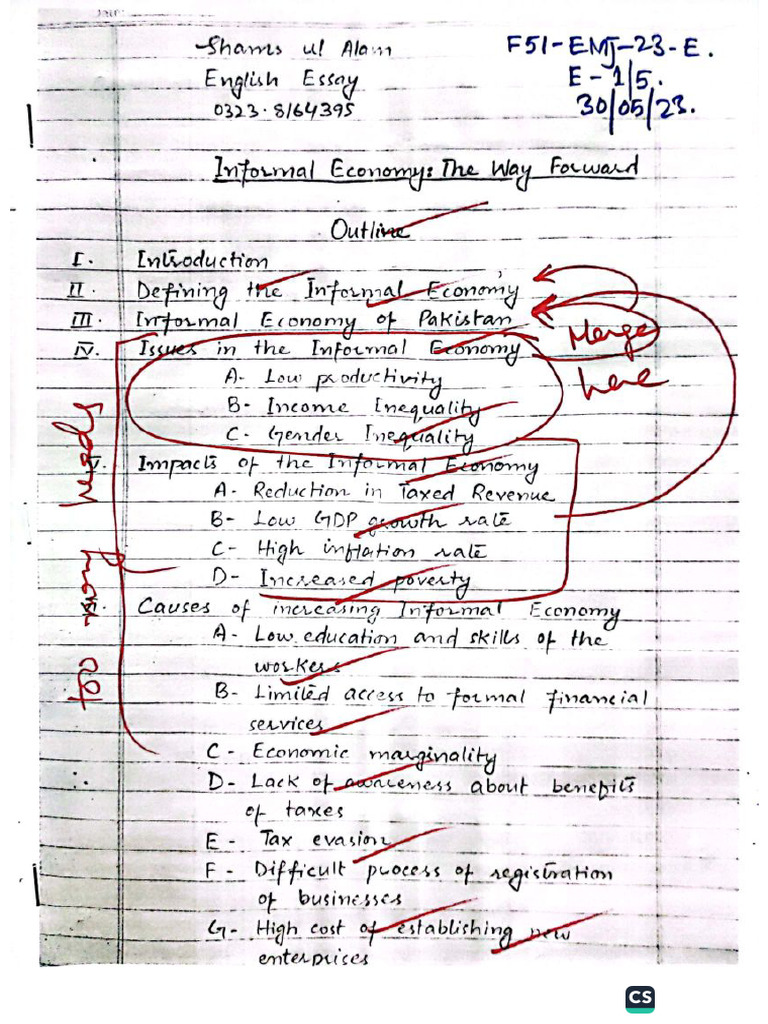 Shams ul Alam
F51-EMJ-23-E.
English Essay
E-1/5.
0323-8164395
30/05/23.
Informal Economy: The Way Forward
Outline
I. Introduction
II. Defining the Informal Economy
III. Informal Economy of Pakistan
IV. Issues in the Informal Economy
Merge
here
A- Low productivity
B- Income Inequality
C- Gender Inequality
V. Impacts of the Informal Economy
A- Reduction in Taxed Revenue
B- Low GDP growth rate
C- High inflation rate
D- Increased poverty
too many heads
VI. Causes of increasing Informal Economy
A- Low education and skills of the
workers
B- Limited access to formal financial
services
C- Economic marginality
D- Lack of awareness about benefits
of taxes
E- Tax evasion
F- Difficult process of registration
of businesses
G- High cost of establishing new
enterprises
CS